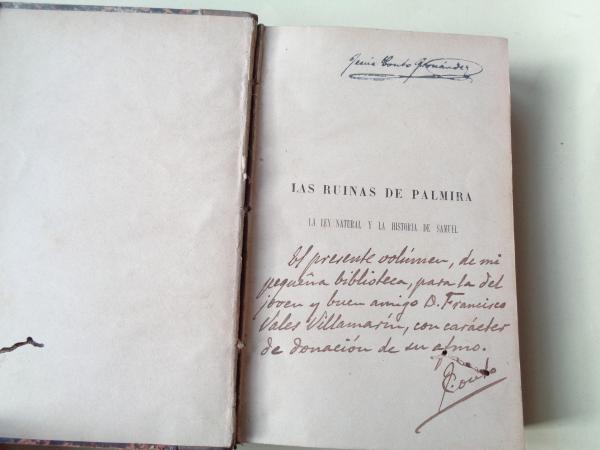 Couto Fernández
LAS RUINAS DE PALMIRA
LA LEY NATURAL Y LA HISTORIA DE SAMUEL
El presente volúmen, de mi
pequeña biblioteca, para la del
joven y buen amigo D. Francisco
Vales Villamarín, con carácter
de donación de su afmo.
Couto